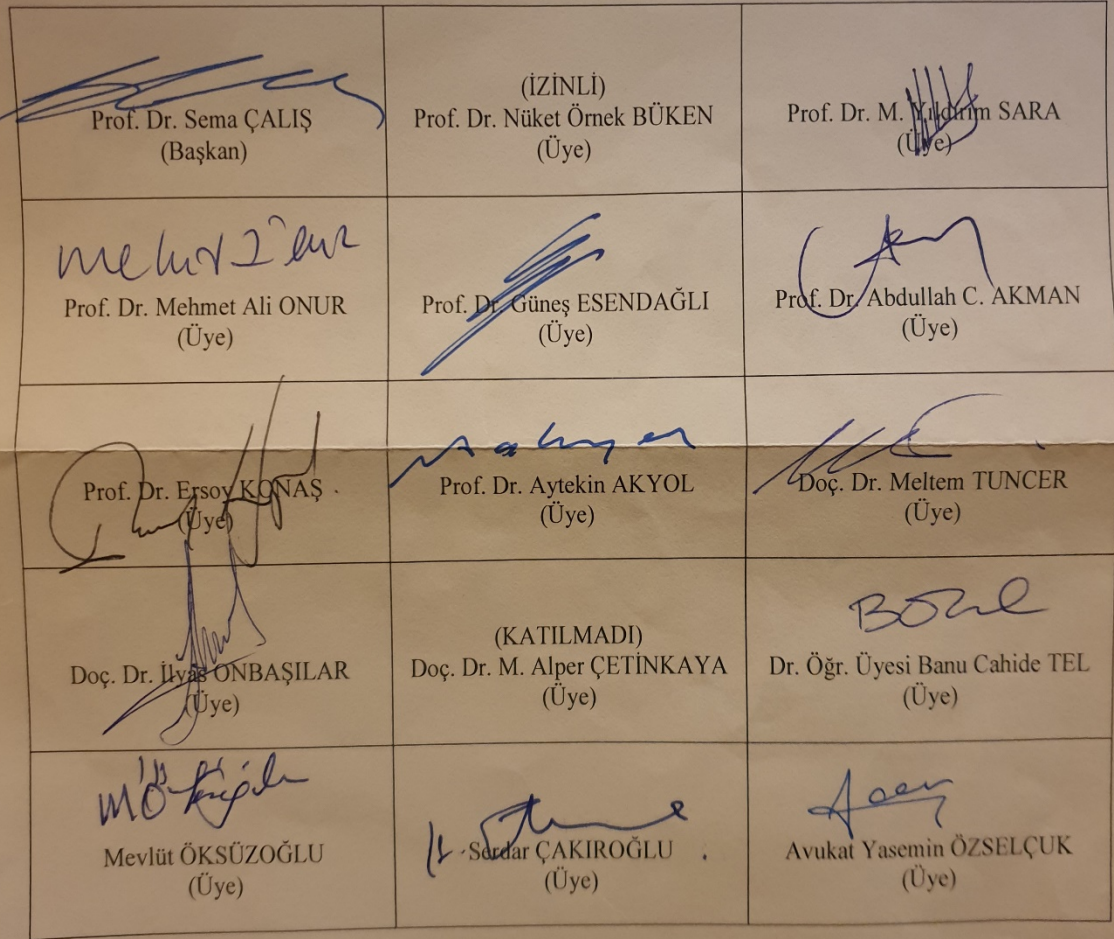 Prof. Dr. Sema ÇALIŞ
(Başkan)
(İZİNLİ)
Prof. Dr. Nüket Örnek BÜKEN
(Üye)
Prof. Dr. M. Yıldırım SARA
(Üye)
Prof. Dr. Mehmet Ali ONUR
(Üye)
Prof. Dr. Güneş ESENDAĞLI
(Üye)
Prof. Dr. Abdullah C. AKMAN
(Üye)
Prof. Dr. Ersoy KONAŞ
(Üye)
Prof. Dr. Aytekin AKYOL
(Üye)
Doç. Dr. Meltem TUNCER
(Üye)
Doç. Dr. İlyas ONBAŞILAR
(Üye)
(KATILMADI)
Doç. Dr. M. Alper ÇETİNKAYA
(Üye)
Dr. Öğr. Üyesi Banu Cahide TEL
(Üye)
Mevlüt ÖKSÜZOĞLU
(Üye)
Serdar ÇAKIROĞLU
(Üye)
Avukat Yasemin ÖZSELÇUK
(Üye)